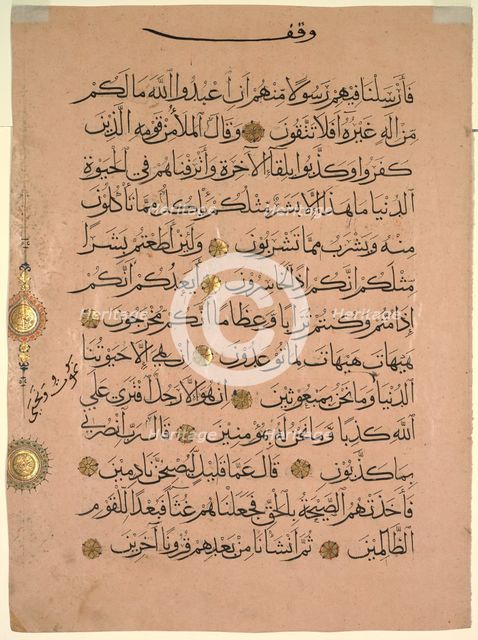 وقف
فأرسلنا فيهم رسولا منهم أن اعبدوا الله ما لكم
من إله غيره أفلا تتقون وقال الملأ من قومه الذين
كفروا وكذبوا بلقاء الآخرة وأترفناهم في الحيوة
الدنيا ما هذا إلا بشر مثلكم يأكل مما تأكلون
منه ويشرب مما تشربون ولئن أطعتم بشرا
مثلكم إنكم إذا لخاسرون أيعدكم أنكم
إذا متم وكنتم ترابا وعظاما أنكم مخرجون
هيهات هيهات لما توعدون إن هي إلا حيوتنا
الدنيا وما نحن بمبعوثين إن هو إلا رجل افترى على
الله كذبا وما نحن له بمؤمنين قال رب انصرني
بما كذبون قال عما قليل ليصبحن نادمين
فأخذتهم الصيحة بالحق فجعلناهم غثاء فبعدا للقوم
الظالمين ثم أنشأنا من بعدهم قرونا آخرين
نموت ونحيى
Heritage Heritage Heritage
Heritage Heritage
Heritage Heritage Heritage
© Heritage